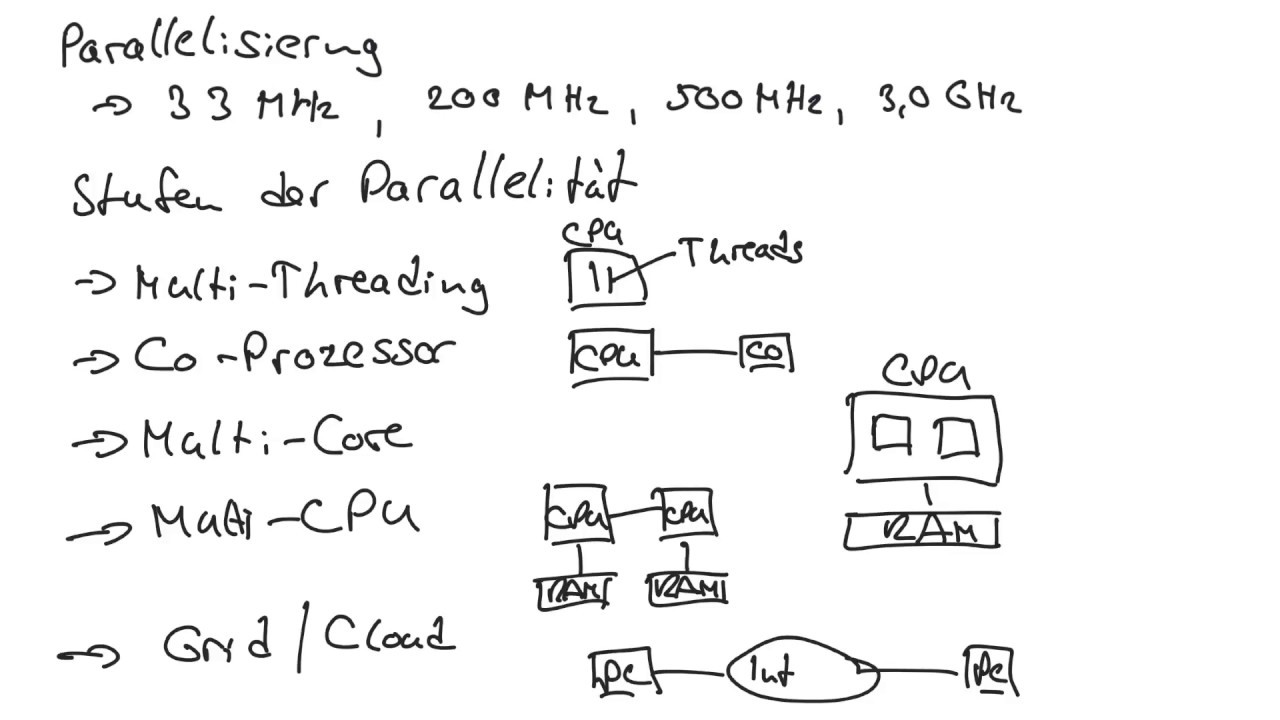 Parallelisierung
→ 33 MHz, 200 MHz, 500 MHz, 3,0 GHz
Stufen der Parallelität
CPU
→ Multi-Threading
Threads
→ Co-Prozessor
CPU
CO
CPU
→ Multi-Core
→ Multi-CPU
CPU
CPU
RAM
RAM
RAM
→ Grid / Cloud
PC
Int
PC